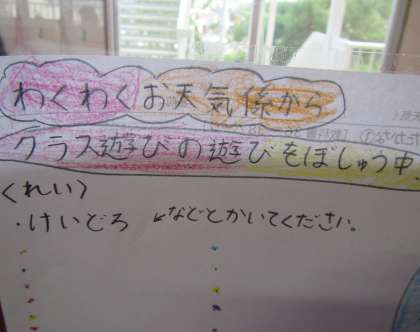 わくわくお天気係から
クラス遊びの遊びをぼしゅう中.
〈れい〉
・けいどろ ←などとかいてください。